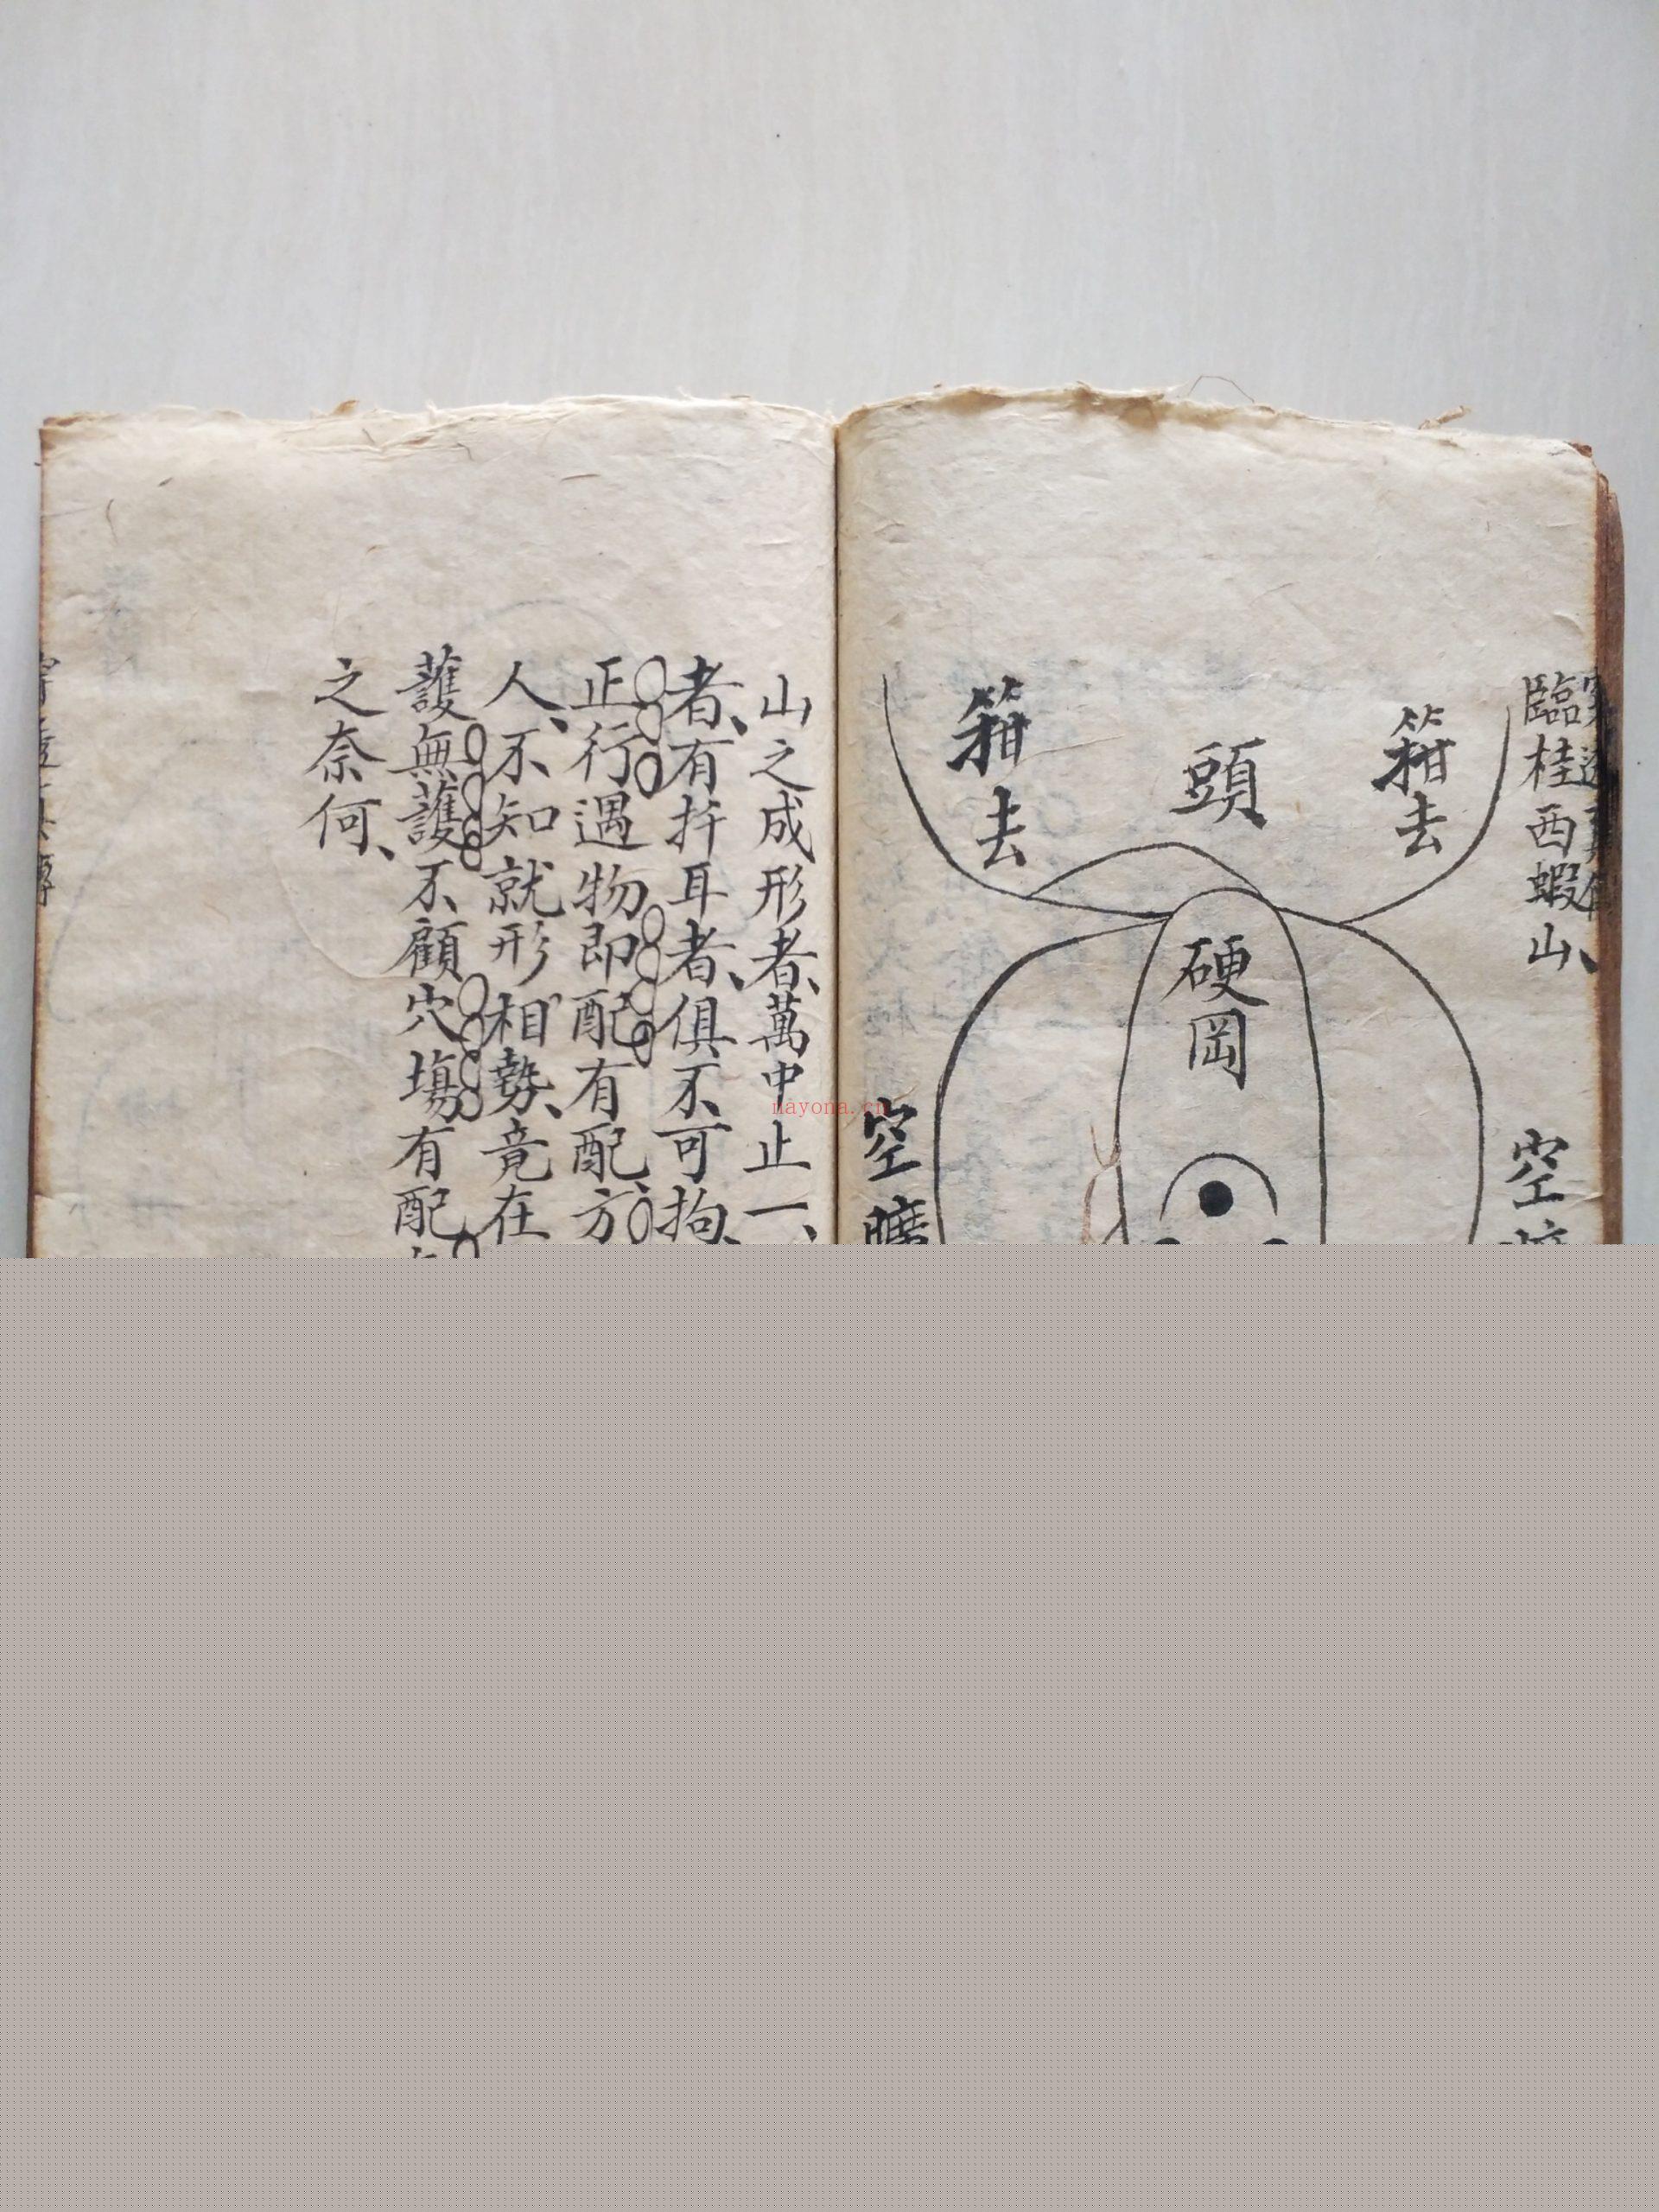 臨桂西蝦山、
頭
去
去
硬岡
空
空曠
山之成形者、萬中止一、
者、有扦耳者、俱不可拘、
正行遇物即配有配、方
人、不知就形相勢、竟在
護無護不顧穴塲有配
之奈何、
nayona.cn